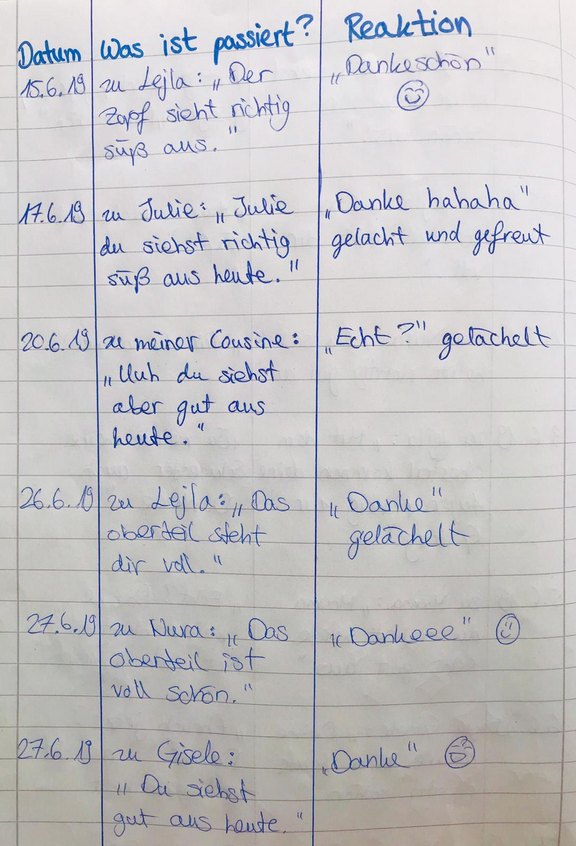 Datum Was ist passiert? Reaktion
15.6.19 zu Lejla: „Der „Dankeschön"
Zopf sieht richtig
süß aus."
17.6.19 zu Julie: „Julie „Danke hahaha"
du siehst richtig gelacht und gefreut
süß aus heute."
20.6.19 zu meiner Cousine: „Echt?" gelächelt
„Uuh du siehst
aber gut aus
heute."
26.6.19 zu Lejla: „Das „Danke"
oberteil steht gelächelt
dir voll."
27.6.19 zu Nura: „Das „Dankeee"
oberteil ist
voll schön."
27.6.19 zu Gisele: „Danke"
„Du siehst
gut aus heute."